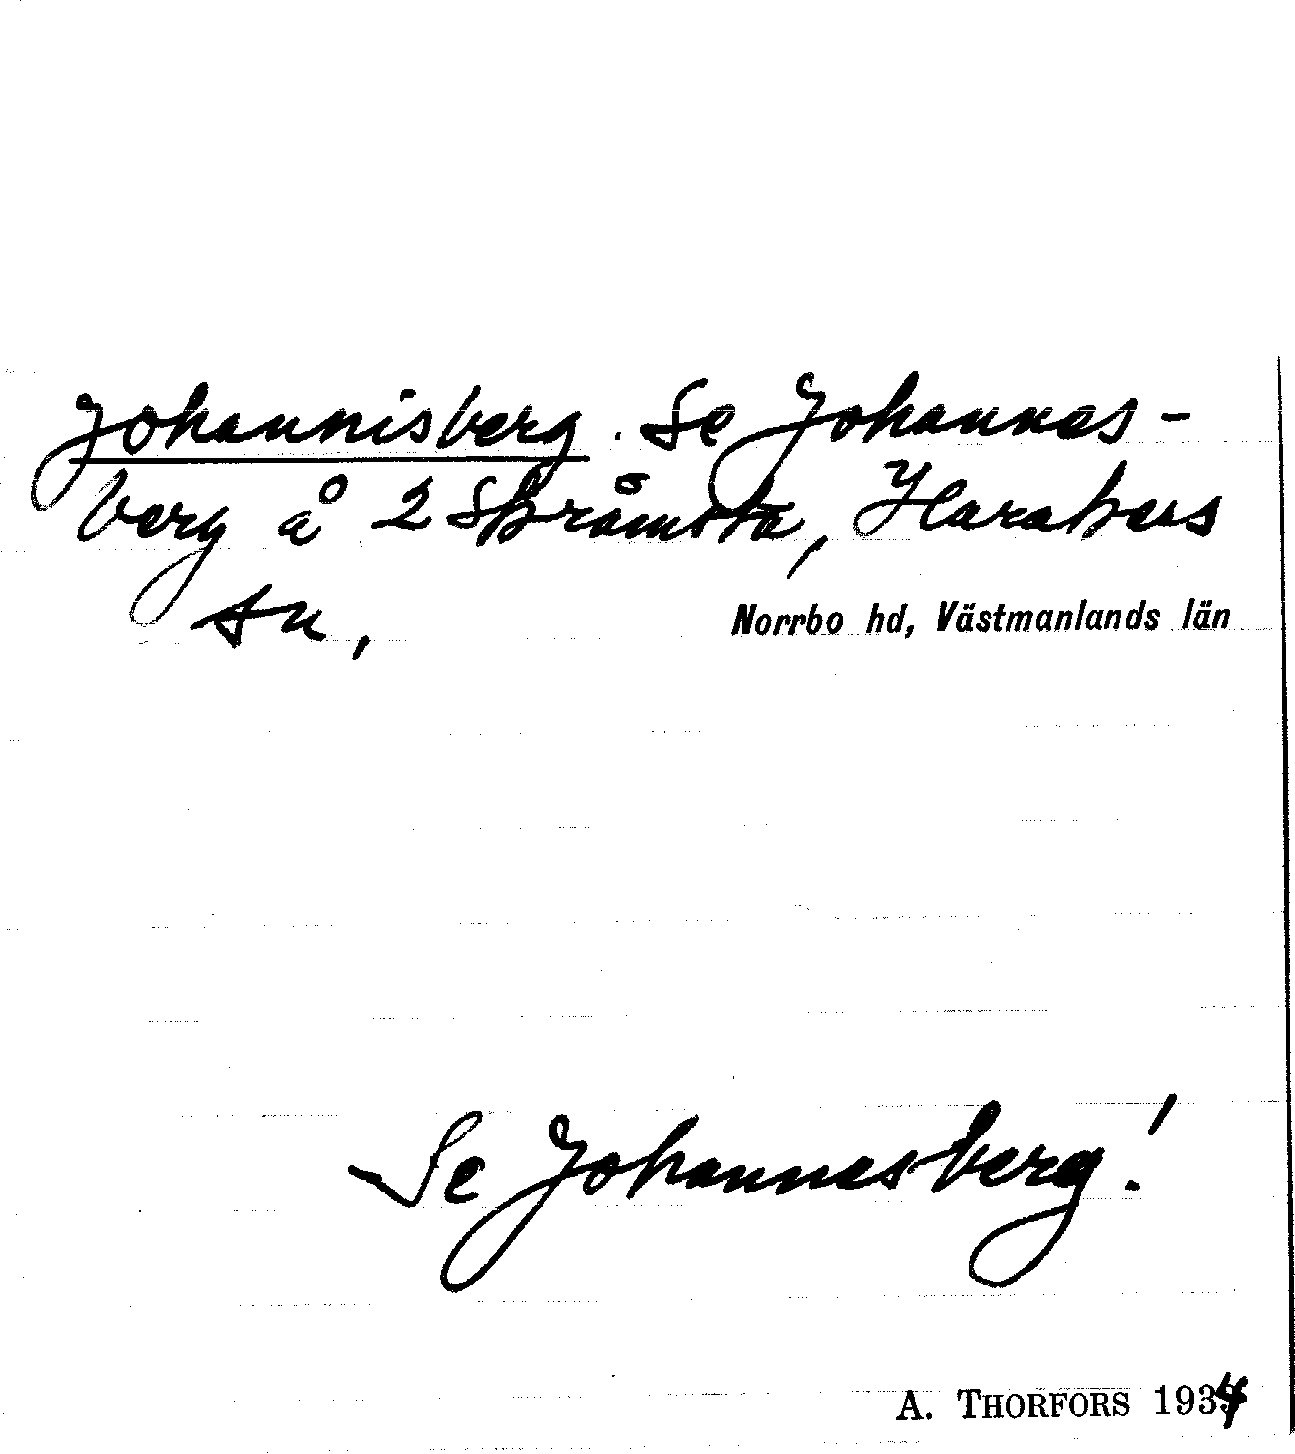 Johannisberg. Se Johannes-
berg å 2 Skråmsta, Harakers
sn,
Norrbo hd, Västmanlands län
Se Johannesberg!
A. THORFORS 1934